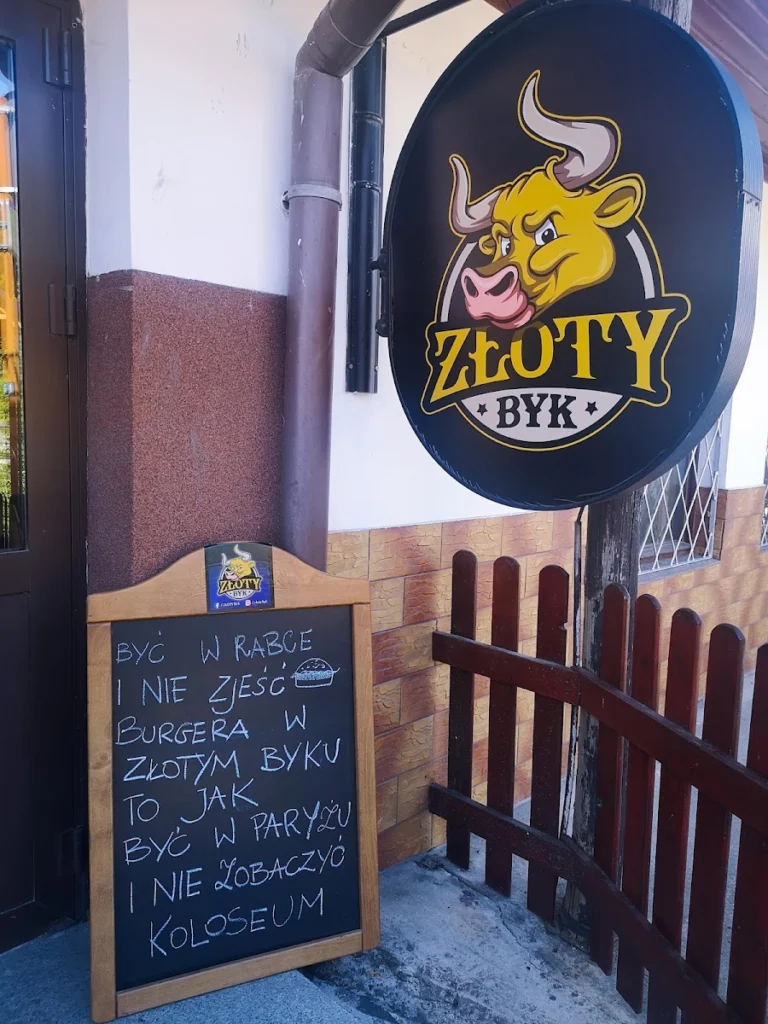 ZŁOTY
BYK
ZŁOTY
BYK
BYĆ W RABCE
I NIE ZJEŚĆ
BURGERA W
ZŁOTYM BYKU
TO JAK
BYĆ W PARYŻU
I NIE ZOBACZYĆ
KOLOSEUM